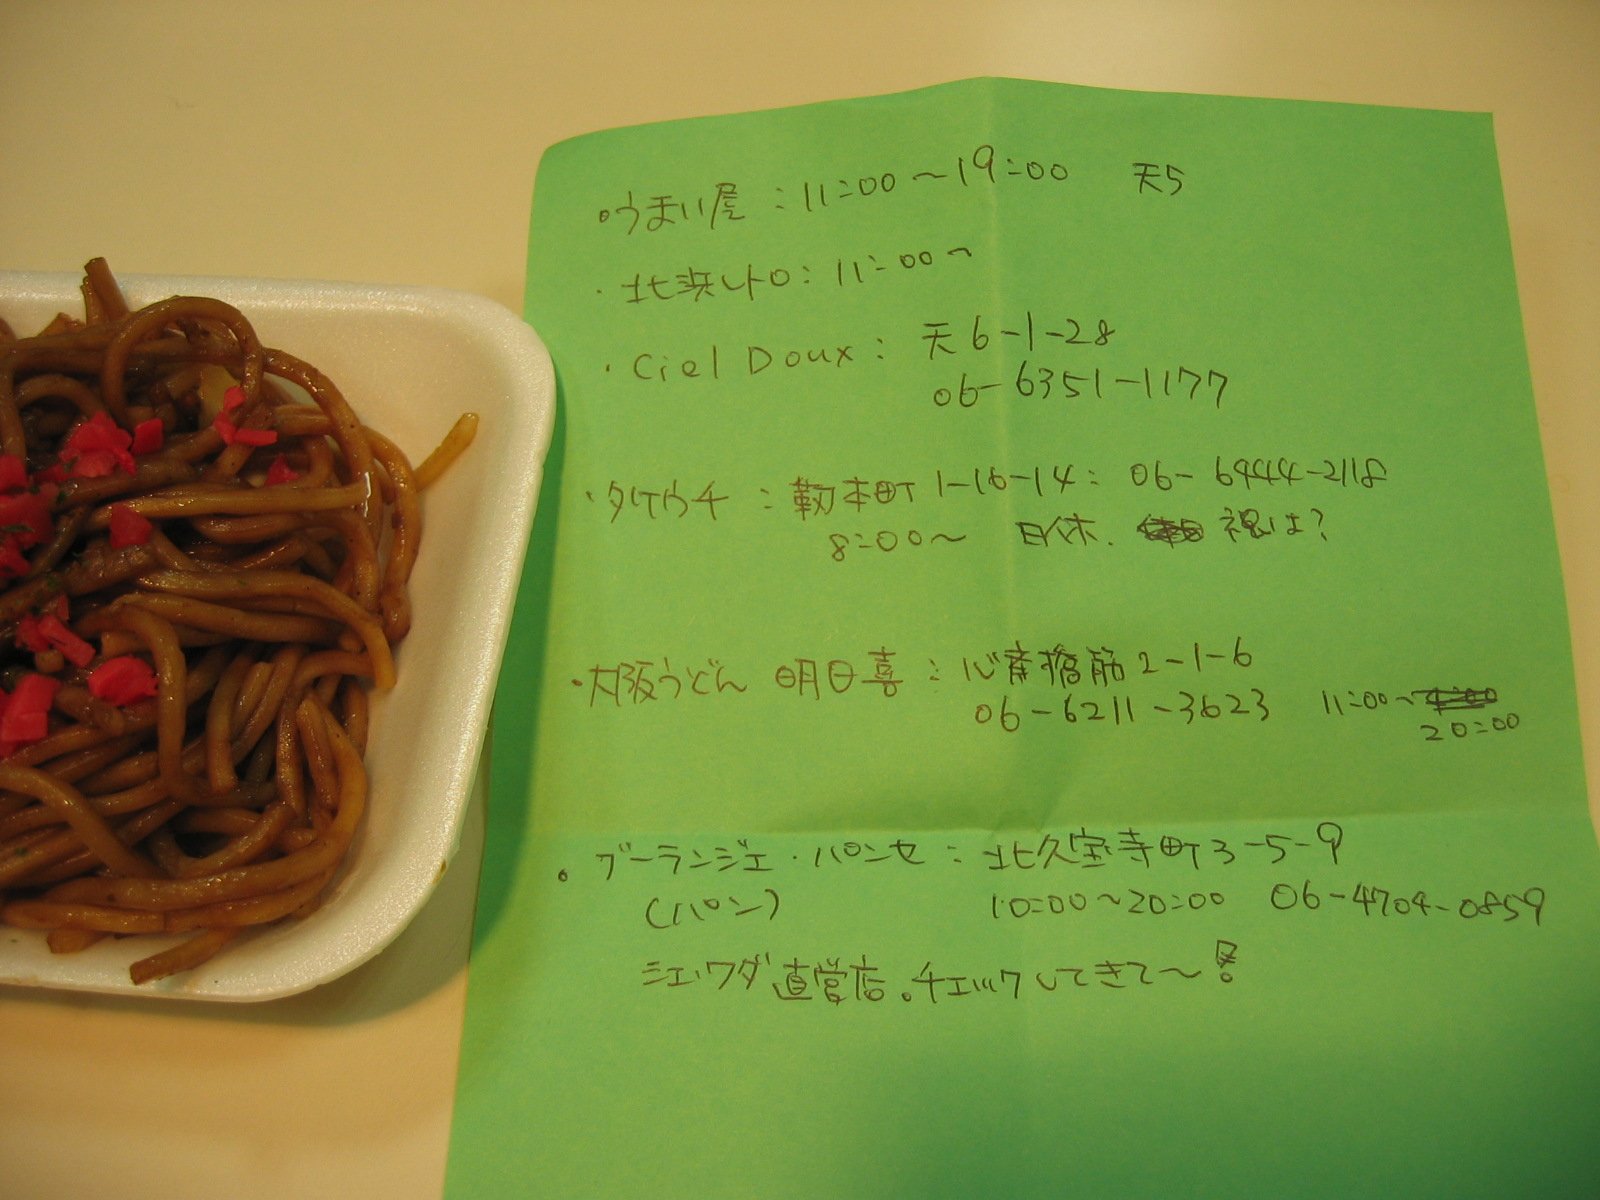 ・うまい屋：11:00〜19:00 天5
・北浜レトロ：11:00〜
・Ciel Doux： 天6-1-28
06-6351-1177
・タケウチ：靭本町1-16-14：06-6444-2118
8:00〜 日休. 祝は?
・大阪うどん 明日喜：心斎橋筋2-1-6
06-6211-3623 11:00〜
20:00
・ブーランジェ・パンセ：北久宝寺町3-5-9
(パン) 10:00〜20:00 06-4704-0859
シェ・ワダ直営店。チェックしてきて〜!